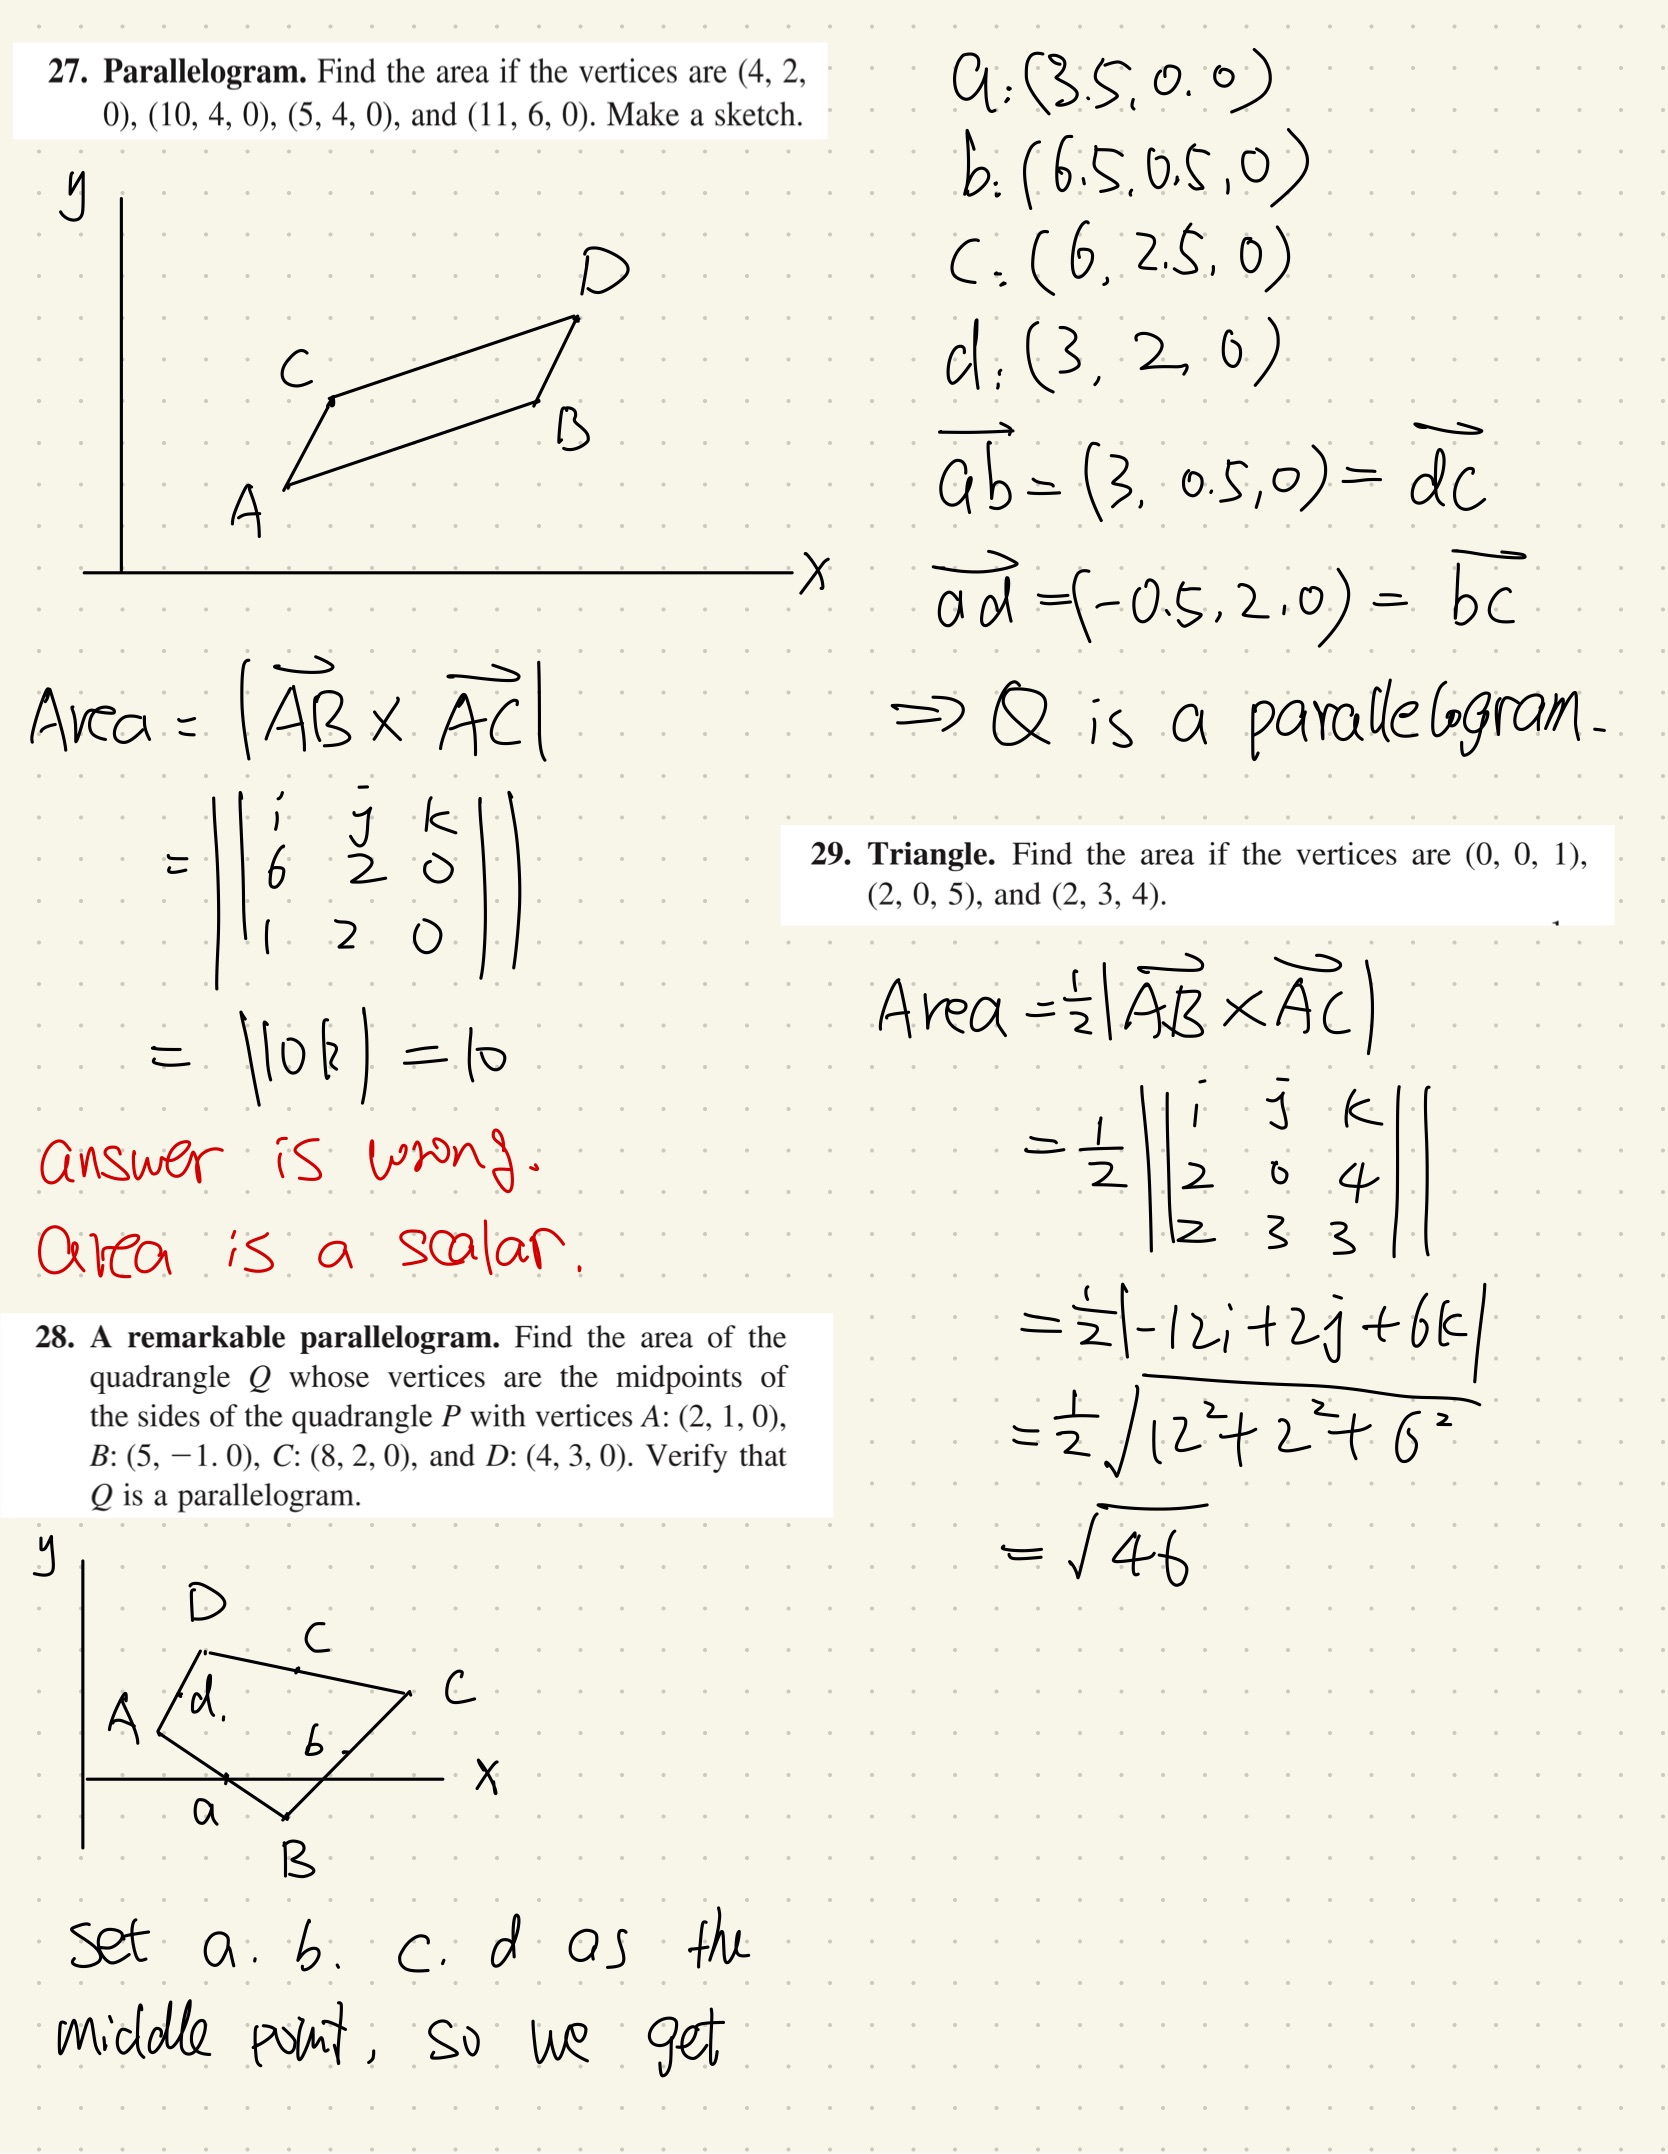 27. Parallelogram. Find the area if the vertices are (4, 2,
0), (10, 4, 0), (5, 4, 0), and (11, 6, 0). Make a sketch.
y
D
C
B
A
x
Area = |AB × AC|
= || i j k
6 2 0
1 2 0 ||
= |10k| = 10
answer is wrong.
area is a scalar.
28. A remarkable parallelogram. Find the area of the
quadrangle Q whose vertices are the midpoints of
the sides of the quadrangle P with vertices A: (2, 1, 0),
B: (5, −1. 0), C: (8, 2, 0), and D: (4, 3, 0). Verify that
Q is a parallelogram.
y
D
c
C
A
d.
b
x
a
B
set a. b. c. d as the
middle point, so we get
a: (3.5, 0.0)
b: (6.5, 0.5, 0)
c: (6, 2.5, 0)
d: (3, 2, 0)
ab = (3, 0.5, 0) = dc
ad = (-0.5, 2, 0) = bc
⇒ Q is a parallelogram.
29. Triangle. Find the area if the vertices are (0, 0, 1),
(2, 0, 5), and (2, 3, 4).
Area = ½|AB × AC|
= ½ || i j k
2 0 4
2 3 3 ||
= ½|-12i + 2j + 6k|
= ½ √12² + 2² + 6²
= √46